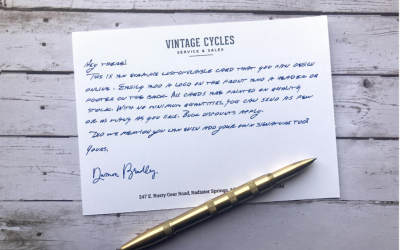 VINTAGE CYCLES
SERVICE & SALES
Hey there!
This is an example customizable card that you can design
online. Easily add a logo on the front and a header or
footer on the back. All cards are printed on quality
stock. With no minimum quantities, you can send as few
or as many as you like. Bulk discounts apply.
Did we mention you can even add your own signature too?
Yours,
Bradley
247 E. Rusty Gear Road, Radiator Springs,